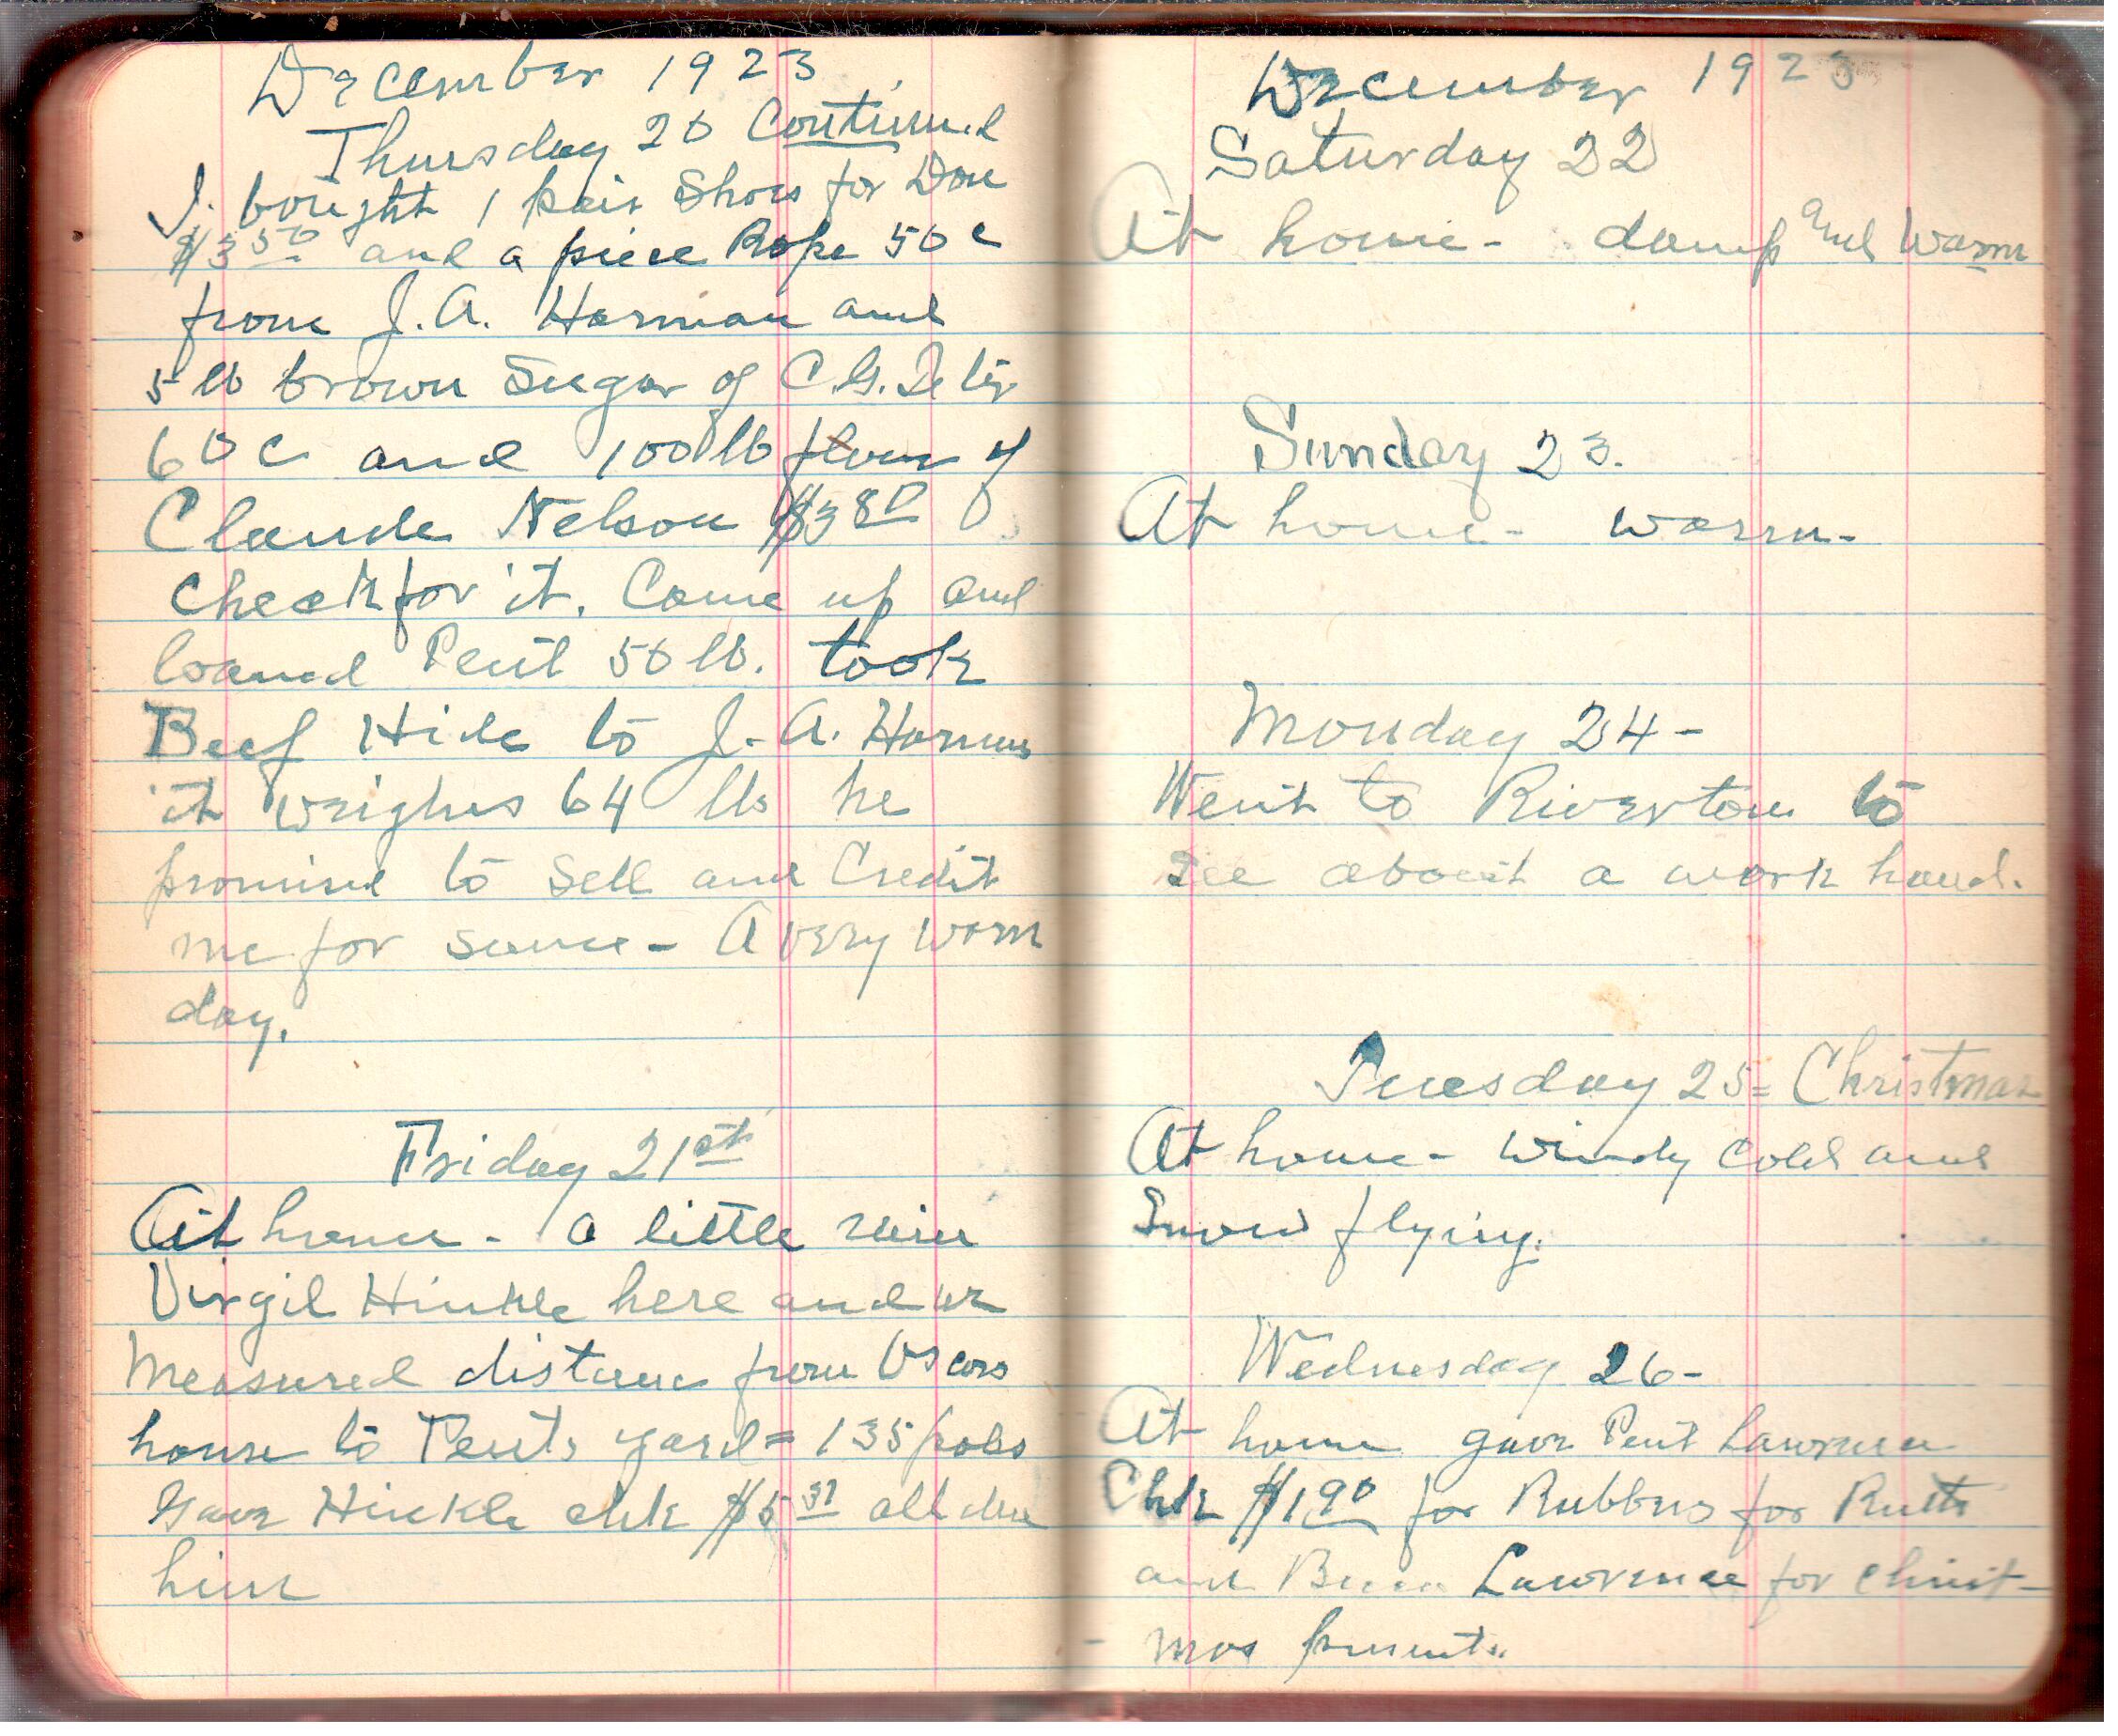 December 1923
Thursday 20 Continued
I. bought 1 pair Shoes for Don
$3 50 and a piece Rope 50 c
from J. A. Harman and
5 lb brown Sugar of C. G.
60 c and 100 lb flour of
Claude Nelson $3 80
Check for it. Came up and
loaned Pent 50 lb. took
Beef Hide to J. A. Harman
it weighes 64 lb he
promised to Sell and Credit
me for same - A very warm
day.
Friday 21st
At home - a little rain
Virgil Hinkle here and we
Measured distance from Oscars
house to Pents yard = 135 poles
Gave Hinkle chk $5 all due
him
December 1923
Saturday 22
At home - damp and Warm
Sunday 23.
At home - warm -
Monday 24 -
Went to Riverton to
See about a work hand.
Tuesday 25 = Christmas
At home - windy cold and
Snow flying.
Wednesday 26 -
At home gave Pent Lawrence
Chk $1 90 for Rubbers for Ruth
and Lawrence for Christ-
mas presents.